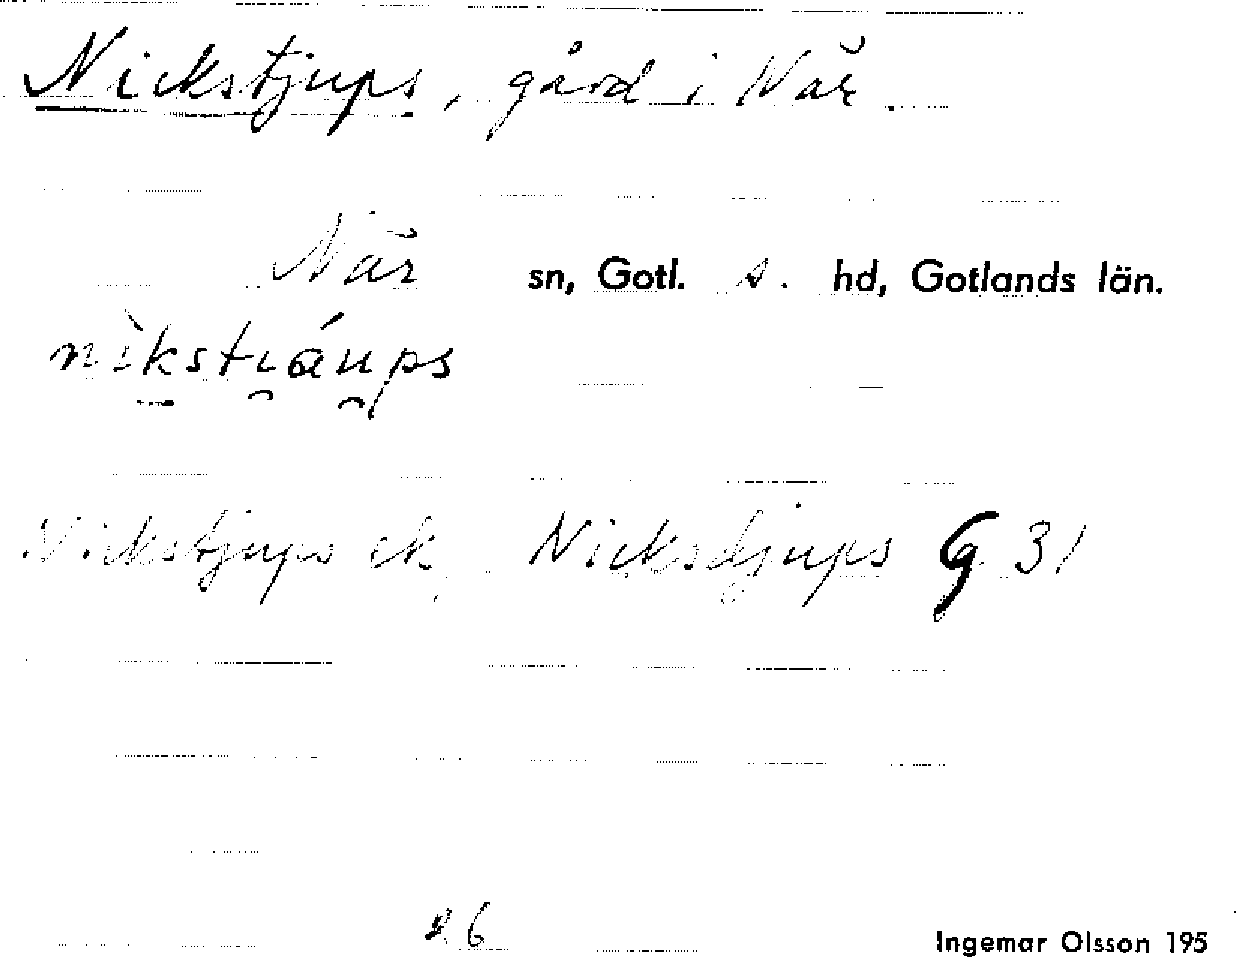 Nickstjups, gård i När.
När sn, Gotl. s. hd, Gotlands län.
nìkstıáups
Nickstjups ek, Nicksdjups G 31
26
Ingemar Olsson 195